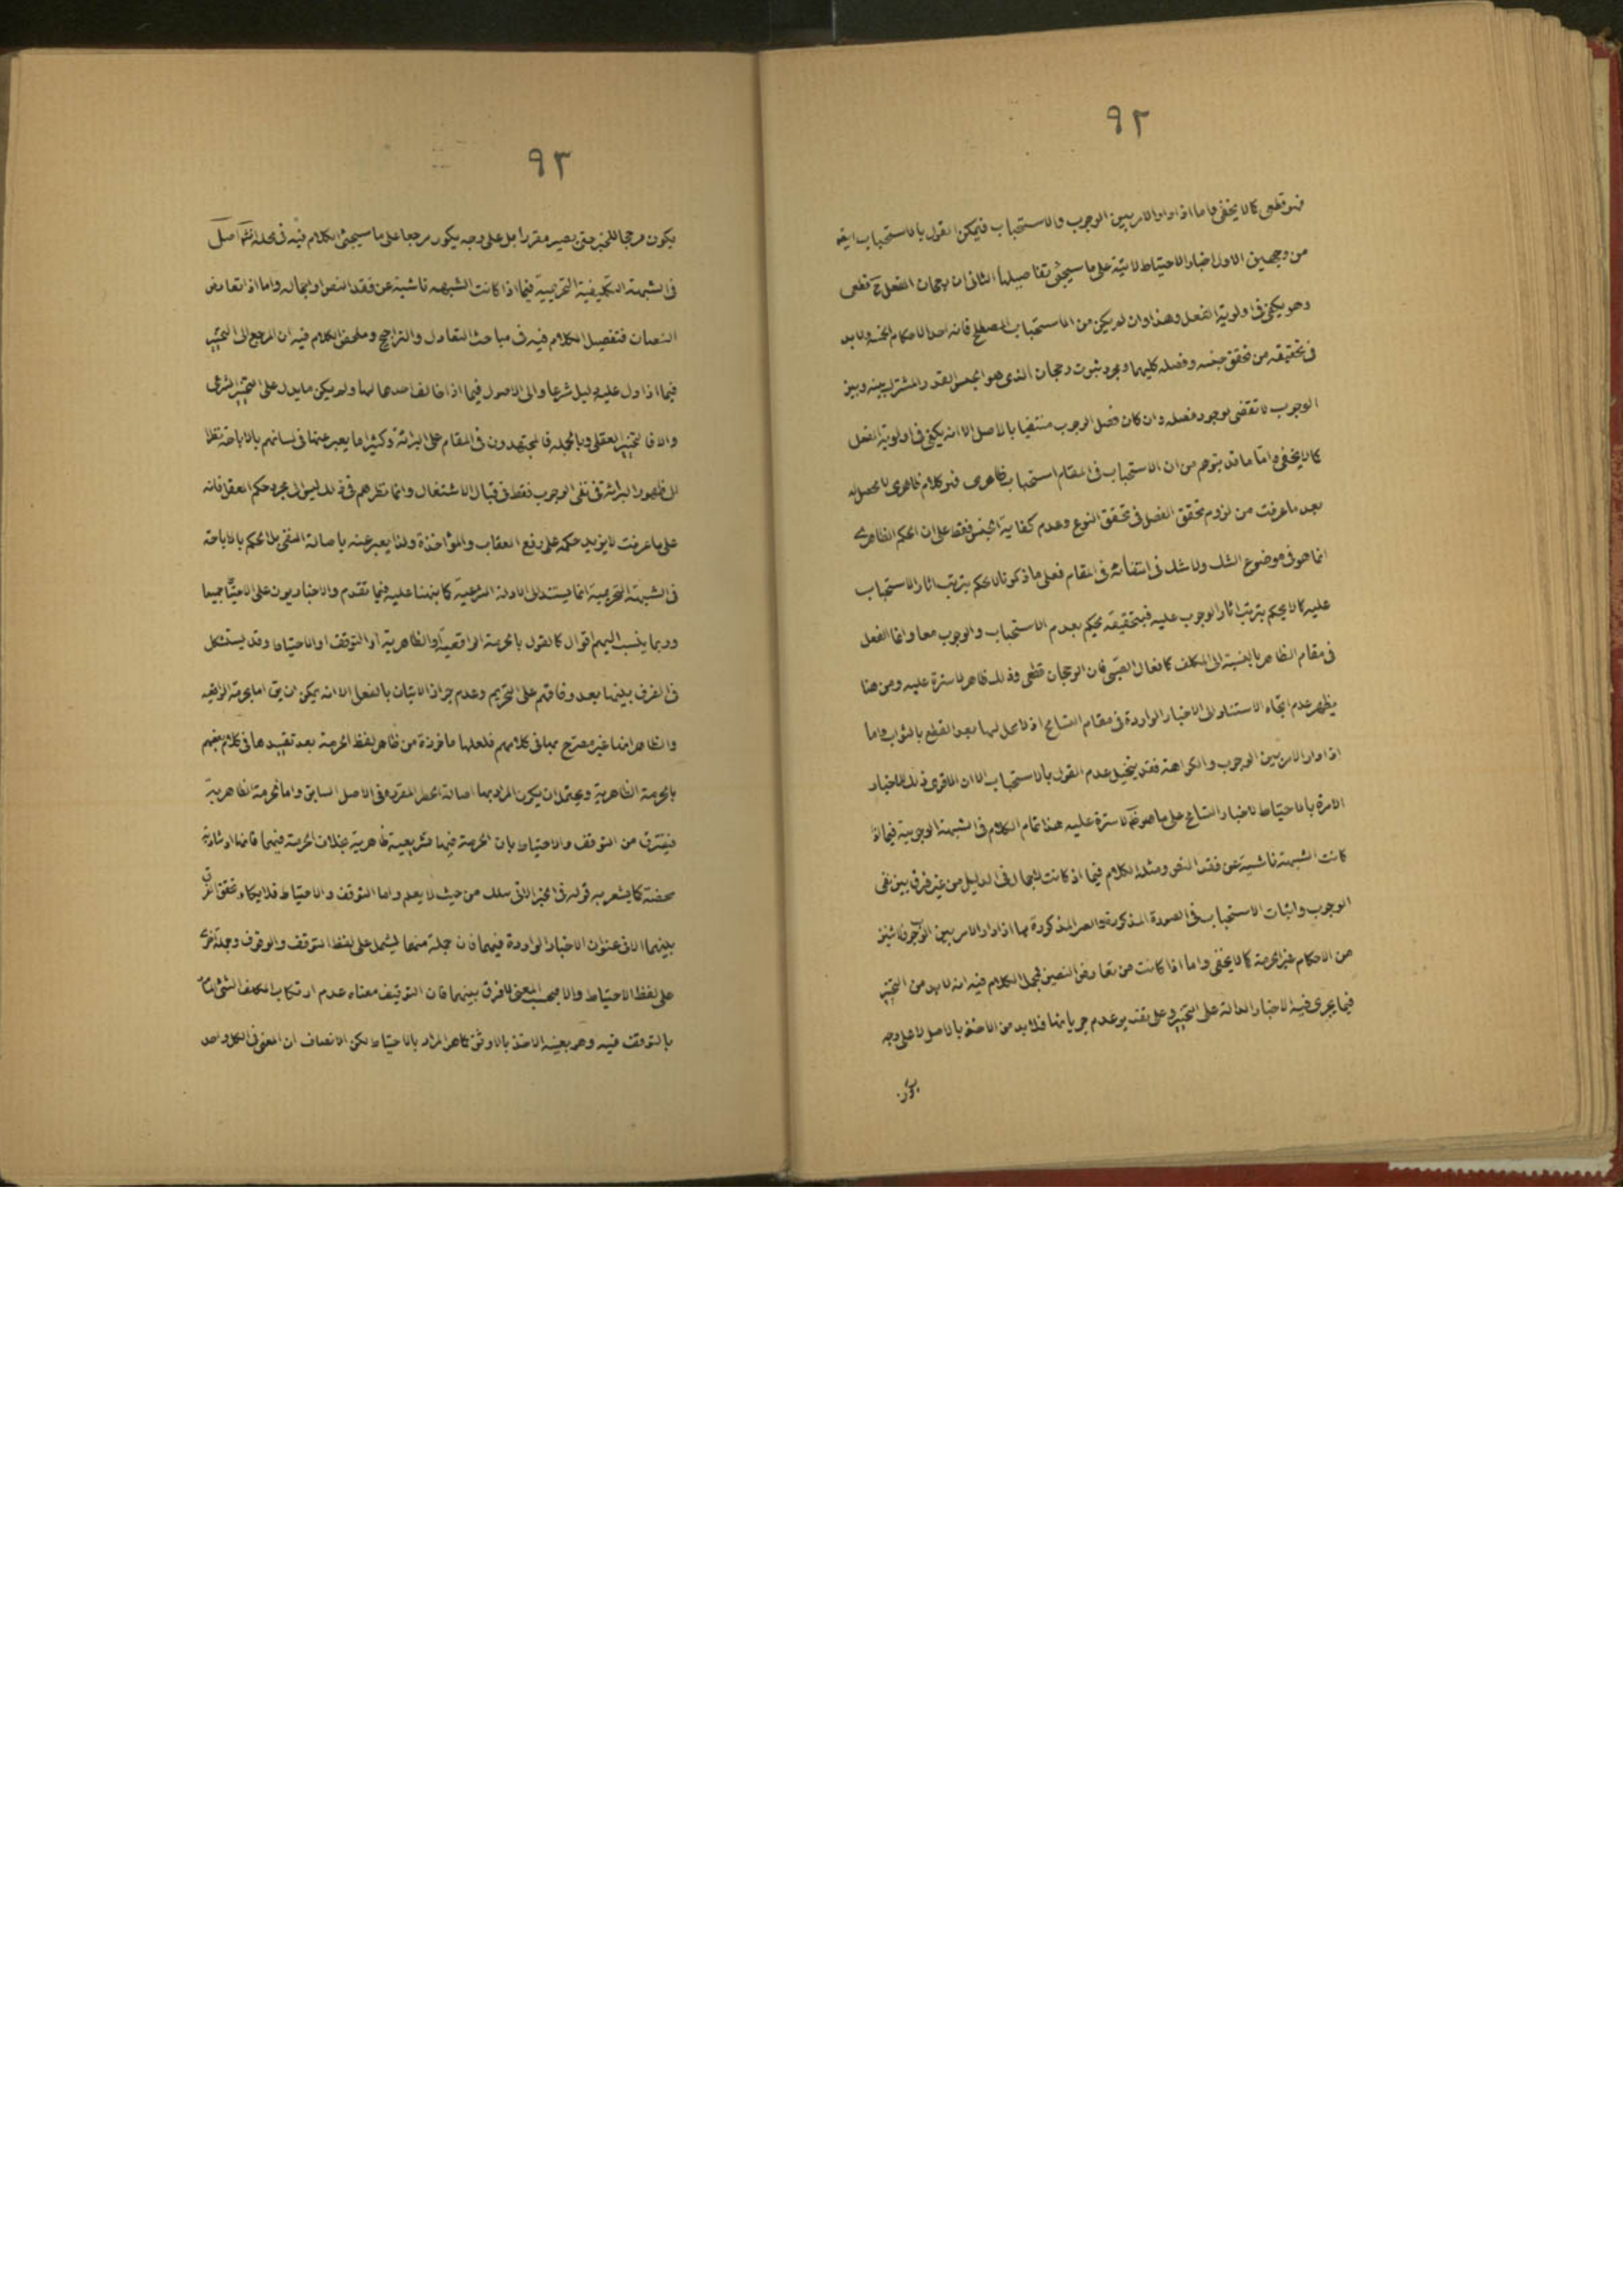 ٩٢
فهو قطعى كما لا يخفى واما اذا دار الامر بين الوجوب والاستحباب فيمكن القول بالاستحباب ايضا
من وجهين الاول اخبار الاحتياط الاتية على ما سيجئ تفاصيلها الثانى ان رجحان الفعل ح قطعى
وهو يكفى فى اولوية الفعل وهذا وان لم يكن من الاستحباب المصطلح فانه احد الاحكام الخمسة ولا بد
فى تحقيقه من تحقق جنسه وفصله كليهما ومجرد ثبوت رجحان الذى هو الجنس القدر المشترك بينه وبين
الوجوب لا تقضى بوجود فصله وان كان فصل الوجوب منتفيا بالاصل الا انه يكفى فى اولوية الفعل
كما لا يخفى واما ما قد يتوهم من ان الاستحباب فى المقام استحباب ظاهرى فهو كلام ظاهرى لا محصل له
بعد ما عرفت من لزوم تحقق الفصل فى تحقق النوع وعدم كفاية الجنس فقط على ان الحكم الظاهرى
انما هو فى موضوع الشك ولا شك فى انتفائه فى المقام فعلى ما ذكرنا لا نحكم بترتب اثار الاستحباب
عليه كما لا يحكم بترتب اثار الوجوب عليه فبتحقيقه يحكم بعدم الاستحباب والوجوب معا وانما الفعل
فى مقام الظاهر بالنسبة الى المكلف كافعال الصبى فان الرجحان قطعى وذلك ظاهر لا سترة عليه ومن هنا
يظهر عدم اتجاه الاستناد الى الاخبار الواردة فى مقام التسامح اذ لا محل لها بعد القطع بالثواب واما
اذا دار الامر بين الوجوب والكراهة فقد يتخيل عدم القول بالاستحباب الا ان الاقوى ذلك للاخبار
الامرة بالاحتياط لاخبار التسامح على ما هو لا سترة عليه هذا تمام الكلام فى الشبهة الوجوبية فيما اذا
كانت الشبهة ناشية عن فقد النص ومثله الكلام فيما اذ كانت لاجمال فى الدليل من غير فرق بين نفى
الوجوب واثبات الاستحباب فى الصورة المذكورة والصور المذكورة بها اذا دار الامر بين الوجوب
من الاحكام غير الحرمة كما لا يخفى واما اذا كانت من تعارض النصين فمجمل الكلام فيه انه لا بد من التخيير
فيما يجرى فيه الاخبار الدالة على التخيير وعلى تقدير عدم جريانها فلا بد من الاخذ بالاصل لا على وجه
يكون
٩٣
يكون مرجحا للخبر حتى يصير مقررا بل على وجه يكون مرجعا على ما سيجئ الكلام فيه فى محله انش اصل
فى الشبهة التكليفية التحريمية فيما اذا كانت الشبهه ناشية عن فقد النص او اجماله واما اذا تعارض
النصان فتفصيل الكلام فيه فى مباحث التعادل والتراجيح وملخص الكلام فيه ان المرجع الى التخيير
فيما اذا دل عليه دليل شرعا والى الاصول فيما اذا خالف احدهما لها ولم يكن ما يدل على التخيير الشرعى
والا فالتخيير العقلى وبالجملة فالمجتهدون فى المقام على البرائة وكثيرا ما يعبر عنها فى لسانهم بالاباحة نظرا
الى ظهور البرائة فى نفى الوجوب فقط فى قبال الاشتغال وانما نظرهم فى ذلك ليس الى مجرد حكم العقل فانه
على ما عرفت لا يزيد حكمه على رفع العقاب والمؤاخذة ولذا يعبر عنه باصالة النفى بل الحكم بالاباحة
فى الشبهة التحريمية انما يستند الى الادلة الشرعية كما نبهنا عليه فيما تقدم والاخباريون على الاحتياط جميعا
وربما ينسب اليهم اقوال كالقول بالحرمة الواقعية او الظاهرية او التوقف او الاحتياط وقد يستشكل
فى الفرق بينها بعد وفاقهم على التحريم وعدم جواز الاتيان بالفعل الا انه يمكن ان يق اما الحرمة الواقعية
والظاهر انها غير مصرح بها فى كلامهم فلعلها ماخوذة من ظاهر لفظ الحرمة بعد تقييدها فى كلام بعضهم
بالحرمة الظاهرية ويحتمل ان يكون المراد بها اصالة الحظر المقررة فى الاصل السابق واما الحرمة الظاهرية
فيفترق من التوقف والاحتياط بان الحرمة فيها تشريعية ظاهرية بخلاف الحرمة فيهما فانها ارشادية
محضة كما يشعر به قوله فى الخبر الاتى هلك من حيث لا يعلم واما التوقف والاحتياط فلا يكاد يتحقق الفرق
بينهما الا فى عنوان الاخبار الواردة فيهما فان جملة منها يشمل على لفظ التوقف والوقوف وجملة اخرى
على لفظ الاحتياط والا فبحسب المعنى لا فرق بينهما فان التوقيف معناه عدم ارتكاب المكلف الشئ المأمور
بالتوقف فيه وهو بعينه الاخذ بالاوثق كما هو المراد بالاحتياط لكن الانصاف ان المعنى فى الكل واحد